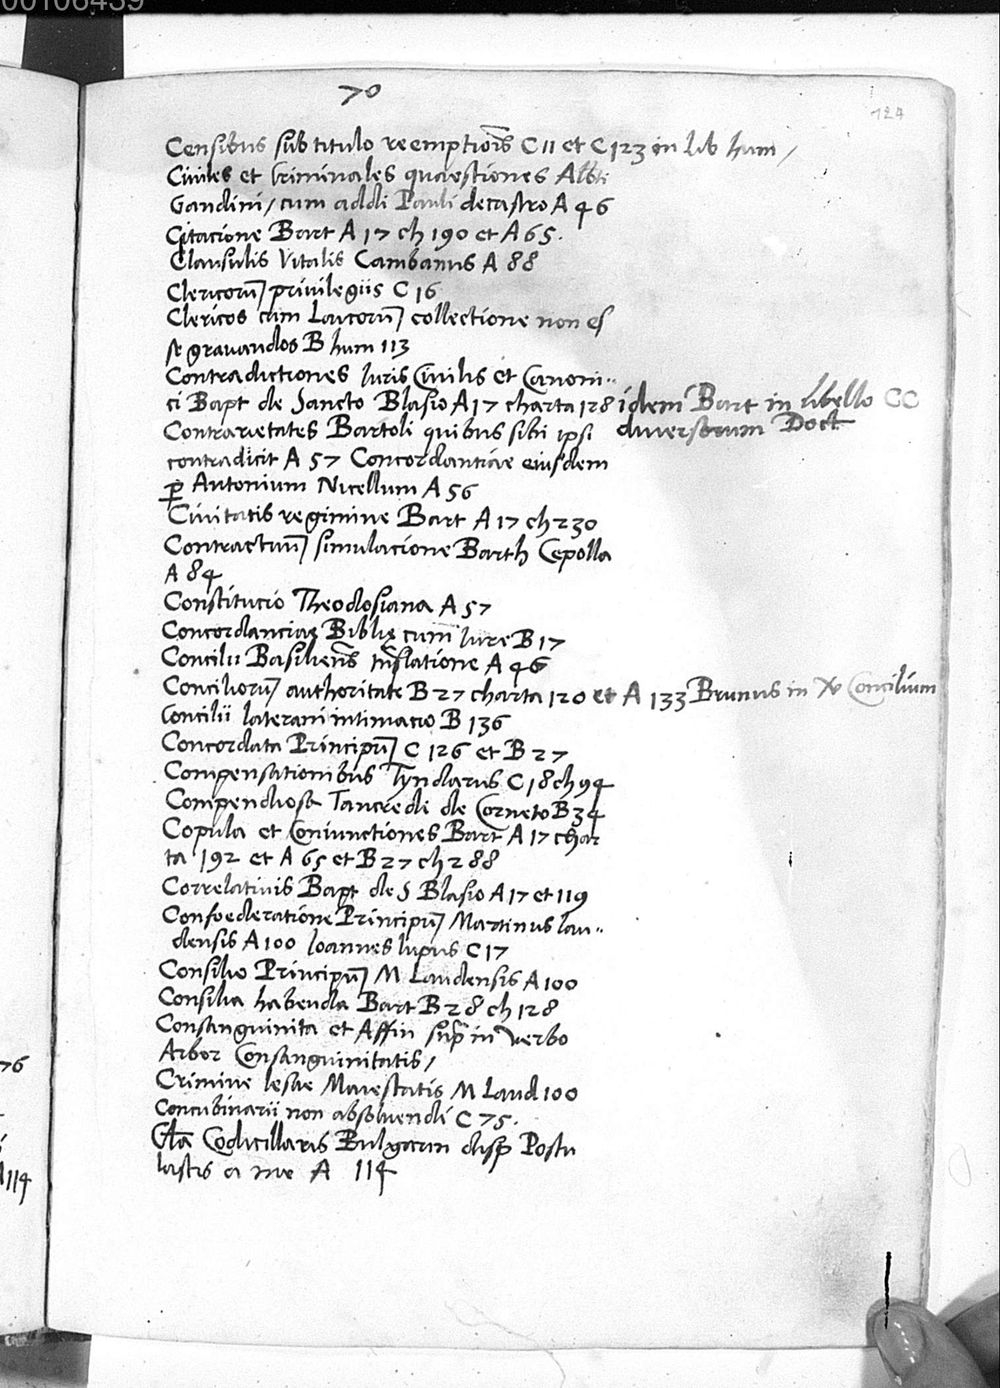 00106439
70
124
Censibus sub titulo reemptiois C 11 et C 123 in lib hum /
Ciuiles et Criminales quaestiones Alb
Gandini / cum addi Pauli de castro A 46
Citacione Bart A 17 ch 190 et A 65.
Clausulis Vitalis Cambanus A 88
Clericorū priuilegiis C 16
Clericos cum Laicorū collectione non es
se grauandos B hum 113
Contradictiones Iuris Ciuilis et Canoni..
ci Bapt de Sancto Blasio A 17 charta 128 idem Bart in libello CC
Contrarietates Bartoli quibus sibi ipsi diuersorum Doct
contradicit A 57 Concordantiae eiusdem
p Antonium Nicellum A 56
Ciuitatis regimine Bart A 17 ch 230
Contractuū simulacione Barth Cepolla
A 84
Constitucio Theodosiana A 57
Concordanciae Biblię cum Iure B 17
Concilii Basiliens trnslatione A 46
Conciliorū authoritate B 27 charta 120 et A 133 Brunus in Concilium
Concilii laterani intimacio B 136
Concordata Principū C 126 et B 27
Compensationibus Tyndarus C 18 ch 94
Compendiosa Tancredi de Corneto B 34
Copula et Coniunctiones Bart A 17 char
ta 192 et A 65 et B 27 ch 288
Correlatiuis Bapt de S Blasio A 17 et 119
Confoederatione Principū Martinus lau..
densis A 100 Ioannes lupus C 17
Consilio Principū M Laudensis A 100
Consilia habenda Bart B 28 ch 128
Consanguinita et Affin supr in Verbo
Arbor Consanguinitatis /
Crimine lesae Maiestatis M Laud 100
Concubinarii non absoluendi C 75.
Cla Codicillaris Bulgarin disp Postu
lastis a me A 114
76
114